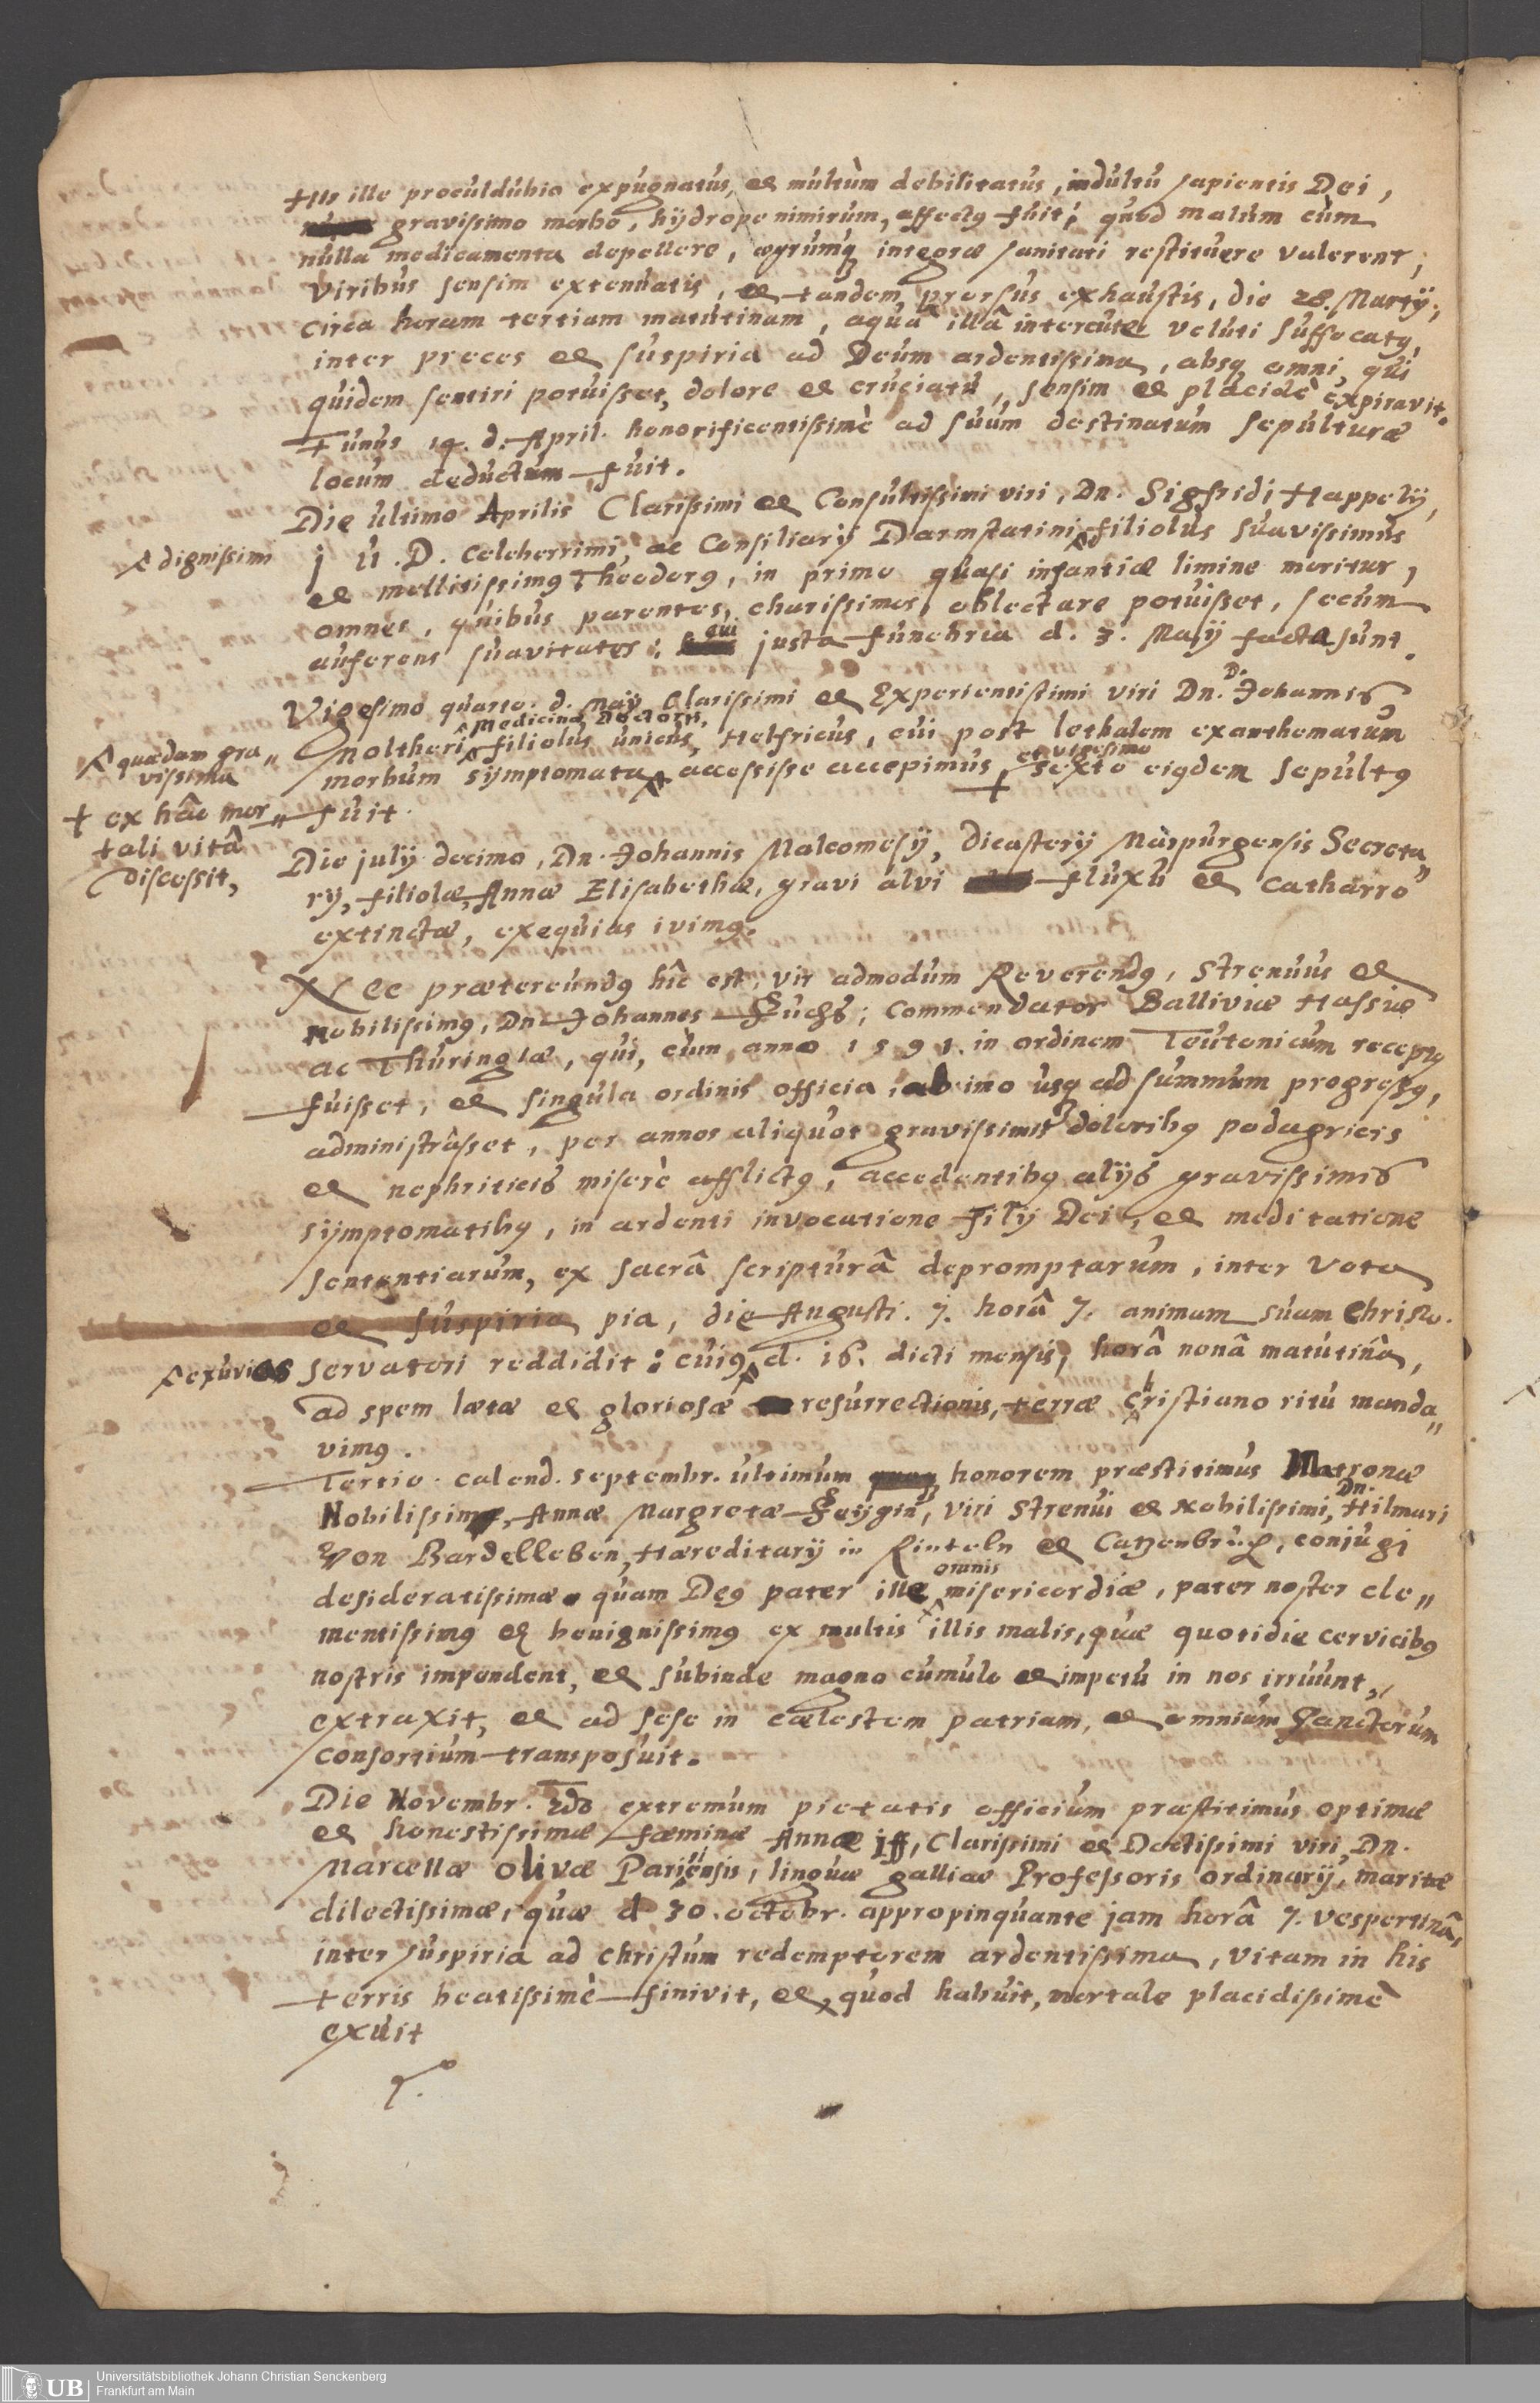 His ille proculdubio expugnatus, et multùm debilitatus, indultu sapientis Dei,
gravissimo morbo, hÿdrope nimirum, affectus fuit; quod malum cùm
nulla medicamenta depellere, ægrumq integræ sanitati restituere valerent,
viribus sensim extenuatis, et tandem prorsus exhaustis, die 28. Martÿ,
circa horam tertiam matutinam, aquâ illâ intercute veluti suffocatus,
inter preces et suspiria ad Deum ardentissima, absq omni, qui
quidem sentiri potuisset, dolore et cruciatu, sensim et placidè expiravit.
Funus 14. d. April. honorificentissimè ad suum destinatum sepulturæ
locum deductum fuit.
Die ultimo Aprilis Clarissimi et Consultissimi viri, Dn. Sigfridi Happelÿ,
dignissimi
J U. D. celeberrimi, ac Consiliarÿ Darmstatini filiolus suavissimus
et mellitissimus Theodorus, in primo quasi infantiæ limine moritur,
omnes, quibus parentes, charissimos, oblectare potuisset, secum
auferens suavitates: cui justa funebria d. 3. Maÿ facta sunt.
Vigesimo quarto. d. Maÿ Clarissimi et Experientissimi viri Dn. D. Johannis
Medicinæ Doctoris,
Moltheri filiolus unicus, Helfricus, cui post lethalem exanthematum
quædam gra„
vissima
et vigesimo
morbum symptomata accessisse accepimus, + sexto eiusdem sepultus
+ ex hâc mor„
tali vitâ
discessit,
fuit.
Die julÿ decimo, Dn. Johannis Malcomesÿ, dicasterÿ Marpurgensis Secreta„
rÿ, filiolæ, Annæ Elisabethæ, gravi alvi fluxu et catharro
extinctæ, exequias ivimus.
Nec prætereundus hîc est, vir admodum Reverendus, Strenuus et
Nobilissimus, Dn Johannes Fuchs; Commendator Balliviæ Hassiæ
ac Thuringiæ, qui, cùm anno 1591. in ordinem Teutonicum receptus
fuisset, et singula ordinis officia, ab imo usq ad summum progressus,
administrâsset, per annos aliquot gravissimis doloribus podagricis
et nephriticis miserè afflictus, accedentibus alÿs gravissimis
sÿmptomatibus, in ardenti invocatione Filÿ Dei, et meditatione
sententiarum, ex sacrâ scripturâ depromptarum, inter vota
et suspiria pia, die Augusti. 7. horâ 7. animam suam Christo.
exuvias
servatori reddidit: cuius d. 16. dicti mensis, horâ nonâ matutinâ,
ad spem lætæ et gloriosæ resurrectionis, terræ christiano ritu manda„
vimus.
Tertio. calend. septembr. ultimum honorem præstitimus Matronæ
Nobilissimæ, Annæ Margretæ Feÿgin, viri Strenui et Nobilissimi, Dn. Hilmari
Von Bardelleben, Hæreditarÿ in Rinteln et , conjugi
omnis
desideratissimæ quam Deus pater ille misericordiæ, pater noster cle„
mentissimus et benignissimus ex multis illis malis, quæ quotidie cervicibus
nostris impendent, et subinde magno cumulo et impetu in nos irruunt,
extraxit, et ad sese in cælestem patriam, et omnium Sanctorum
consortium transposuit.
Die Novembr. 2do extremum pietatis officium præstitimus optimæ
et honestissimæ fœminæ Annæ Iff, Clarissimi et Doctissimi viri, Dn.
Marcellæ Olivæ Parisiensis, linguæ gallicæ Professoris ordinarÿ, maritæ
dilectissimæ, quæ d 30. octobr. appropinquante jam horâ 7. vespertinâ,
inter suspiria ad Christum redemptorem ardentissima, vitam in his
terris beatissimè finivit, et, quod habuit, mortale placidissimè
exuit
UB Universitätsbibliothek Johann Christian Senckenberg
Frankfurt am Main